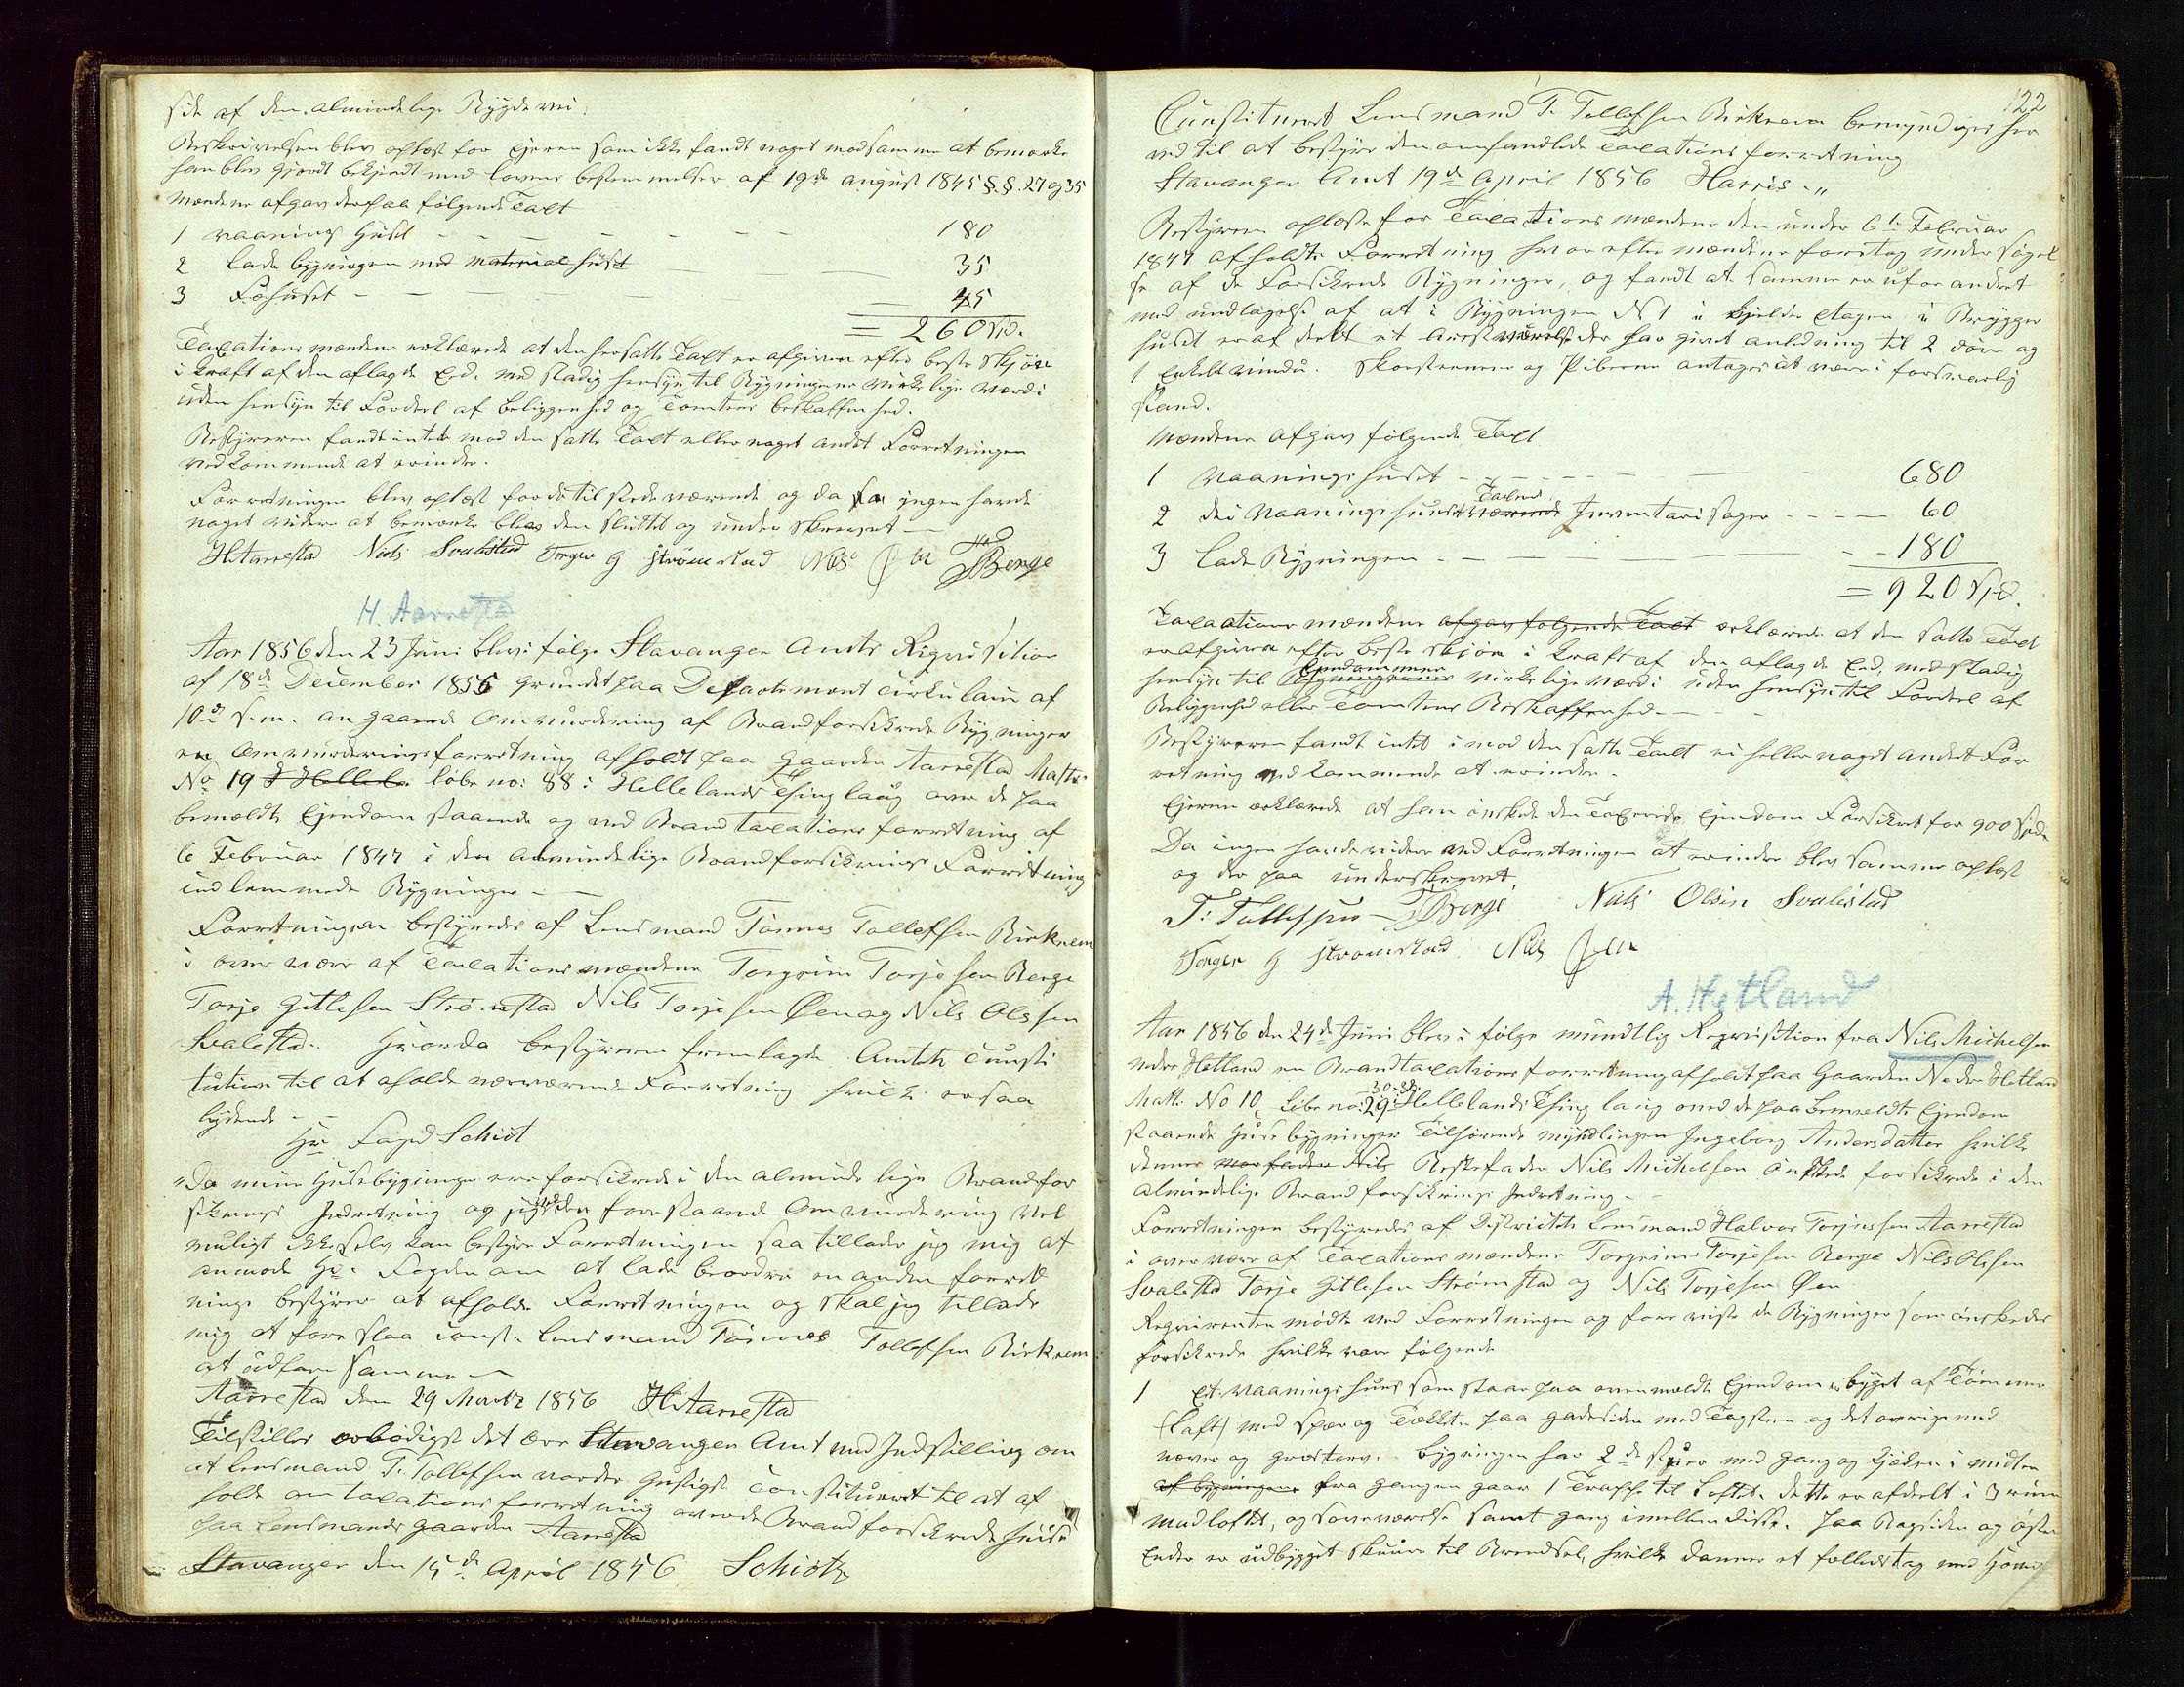 side af den almindelige Bygdevei.
Beskrivelsen blev oplæst for Ejeren som ikke fandt noget mod samme at bemærke
han blev gjordt bekjendt med lovens bestemmelser af 19de August 1845 §.§. 27 og 35
Mændene afgav derpaa følgende Taxt
1 Vaanings Huset - - - - - - 180
2 Ladebygningen med Material huset - - 35
3 Føhuset - - - - - 45
= 260 Spd.
Taxationsmændene erklærede at den hersatte Taxt er afgiven efter beste skjøn
i kraft af den aflagde Eed med stadig hensyn til Bygningenes virkelige Værdi
uden hensyn til Fordeel af beliggenhed og Tomtens beskaffenhed.
Bestyreren fandt intet mod den satte Taxt eller noget andet Forretningen
vedkommende at erindre.
Forretningen blev oplæst for de tilstedeværende og da ingen havde
noget videre at bemærke blev den sluttet og underskrevet -
HAarrestad Niels Svalestad Torger G Strømstad Nils Øen TTSBerge
H. Aarrestad
Aar 1856 den 23 Juni blev i følge Stavanger Amts Reqvisition
af 18de December 1855 grundet paa Departement Cirkulaire af
10de s.m. angaaende Omvurdering af Brandforsikrede Bygninger
en Omvurderingsforretning afholdt paa Gaarden Aarrestad Matr.
No 19 løbe no: 88 i Hellelands Thinglaug over de paa
bemældte Ejendom staaende og ved Brandtaxationsforretning af
6 Februar 1847 i den Almindelige Brandforsikrings Forretning
indlemmede Bygninger - -
Forretningen bestyredes af Lensmand Tønnes Tollefsen Birkrem
i overvær af Taxationsmændene Torgrim Torjesen Berge
Torje Gitlesen Strømstad Nils Torjesen Øen og Nils Olsen
Svalestad. Hvorda bestyreren fremlagde Amtets Consti
tution til at afholde nærværende Forretning hvilke er saa
lydende - -
Hr. Foged Schiøt
"Da mine Husebygninger ere forsikrede i den almindelige Brandfor
sikrings Indretning og jeg ved den forestaaende Omvurdering vel
muligt ikke selv kan bestyre Forretningen saa tillader jeg mig at
anmode Hr. Fogden om at lade beordre en anden forret
nings bestyrer at afholde Forretningen og skal jeg tillade
mig at foreslaa const. Lensmand Tønnes Tollefsen Birkrem
at udføre samme -
Aarrestad den 29 Martz 1856 HAarrestad
Tilstilles ærbødigst det Ærv Stavanger Amt med Indstilling om
at Lensmand T. Tollefsen vorder gunstigst Constitueret til at af
holde om taxationsforretning over de Brandforsikrede huse
paa Lensmandsgaarden Aarrestad
Stavanger den 15de April 1856 Schiøtz
122
Constitueret Lensmand T. Tollefsen Birkrem bemyndiges her
ved til at bestyre den omhandlede Taxationsforretning
Stavanger Amt 19de April 1856 Harris "
Bestyreren oplæste for Taxationsmændene den under 6te Februar
1847 afholdte Forretning hvorefter mændene foretog undersøgel
se af de Forsikrede Bygninger, og fandt at samme er uforandret
med undtagelse af at i Bygningen No 1 i kjelder Etagen i Brygger
huset er afdeelt et Arrestværelse der har givet anledning til 2 døre og
1 Enkelt vindu. Skorstenene og Piberne antages at være i forsvarlig
stand.
Mændene afgav følgende Taxt
1 Vaaningshuset - - - - - - 680
2 de i Vaaningshuset værende Taxerede Inventarisager - - - 60
3 Lade Bygningen - - - - 180
= 920 Spd.
Taxationsmændene afgav følgende Taxt erklærede at den satte Taxt
er afgiven efter beste skjøn i kraft af den aflagde Eed, med stadig
hensyn til Bygningernes Ejendommens virkelige værdi uden hensyn til Fordeel af
Beliggenhed eller Tomtens Beskaffenhed - -
Bestyreren fandt intet i mod den satte Taxt ei heller noget andet For
retning vedkommende at erindre.
Ejeren erklærede at han ønskede den Taxerede Ejendom Forsikret for 900 Spd
Da ingen havde videre ved Forretningen at erindre blev samme oplæst
og der paa underskrevet.
T: Tollefsen TTSBerge Niels Olsen Svalestad
Torger G Strømstad Nils Øen
A. Hetland
Aar 1856 den 24de Juni blev i følge mundtlig Reqvisition fra Nils Michelsen
nedre Hetland en Brandtaxationsforretning afholdt paa Gaarden Nedre Hetland
Matr. No 10, Løbe no: 29 30 - 32 i Hellelands Thinglaug over de paa bemældte Ejendom
staaende Huse bygninger Tilhørende myndlingen Ingeborg Andersdatter hvilke
dennes morfader Nils Bestefader Nils Michelsen ønskede forsikrede i den
almindelige Brandforsikrings Indretning -
Forretningen bestyredes af Districtets Lensmand Halvor Torjussen Aarrestad
i overvær af Taxationsmændene Torgrim Torjesen Berge Nils Olsen
Svalestad Torje Gitlesen Strømstad og Nils Torjesen Øen
Reqvirenten mødte ved Forretningen og foreviste de Bygninger som ønskedes
forsikrede hvilke vare følgende
1 Et Vaaningshuus som staar paa ovenmeldte Ejendom er bygget af Tømmer
(Laft) med spær og Tækket paa gadesiden med Tagsteen og det øvrige med
næver og græstorv. Bygningen har 2de stuer med gang og kjøken i midten
af bygningen fra gangen gaar 1 Trappe til Loftet. dette er afdeelt i 3 rum
mudloftet, og soveværelse samt gang imellem disse. paa Bagsiden og østen
Ender er udbygget skuur til Brendsel, hvilke danner et fælleds tag med Hoved